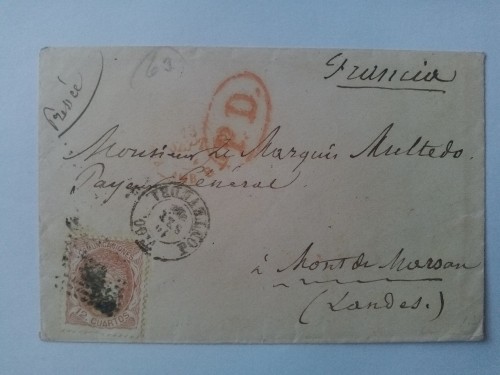 Francia
63
P.D.
Monsieur le Marquis Multedo.
Payeur Général
PONTEVEDRA
VIGO
à Mont de Marsan
(Landes.)
12 CUARTOS